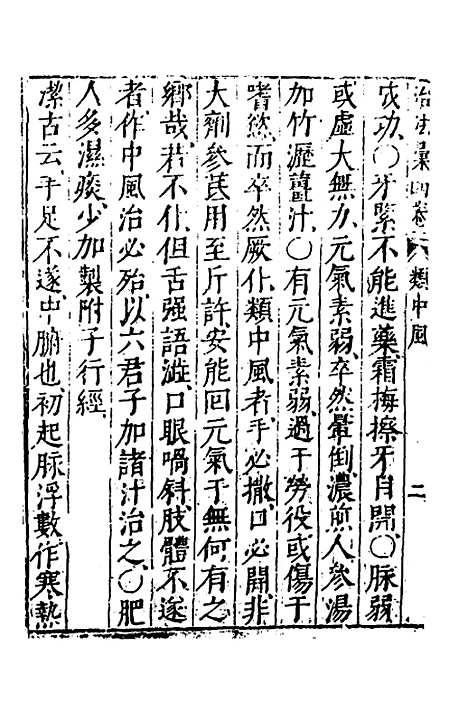 治法彙 卷 類中風 二
成功〇牙緊不能進藥霜梅擦牙自開〇脉弱
或虛大無力元氣素弱卒然暈倒濃煎人參湯
加竹瀝薑汁〇有元氣素弱過于勞役或傷于
嗜慾而卒然厥仆類中風者手必撒口必開非
大劑參芪用至斤許安能回元氣于無何有之
鄉哉若不仆但舌强語澁口眼喎斜肢體不遂
者作中風治必殆以六君子加諸汁治之〇肥
人多濕痰少加製附子行經
潔古云手足不遂中腑也初起脉浮數作寒熱